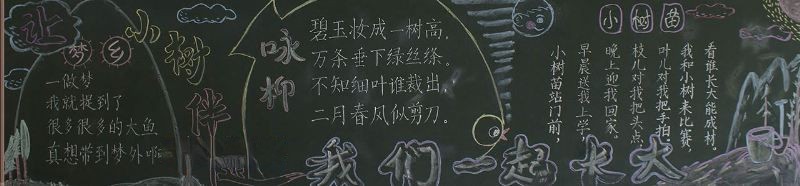 让小树伴
我们一起长大
梦乡
一做梦
我就捉到了
很多很多的大鱼
真想带到梦外啊
咏柳
碧玉妆成一树高,
万条垂下绿丝绦。
不知细叶谁裁出,
二月春风似剪刀。
小树苗
小树苗站门前,
早晨送我上学,
晚上迎我回家。
枝儿对我把头点,
叶儿对我把手拍。
我和小树来比赛,
看谁长大能成材。